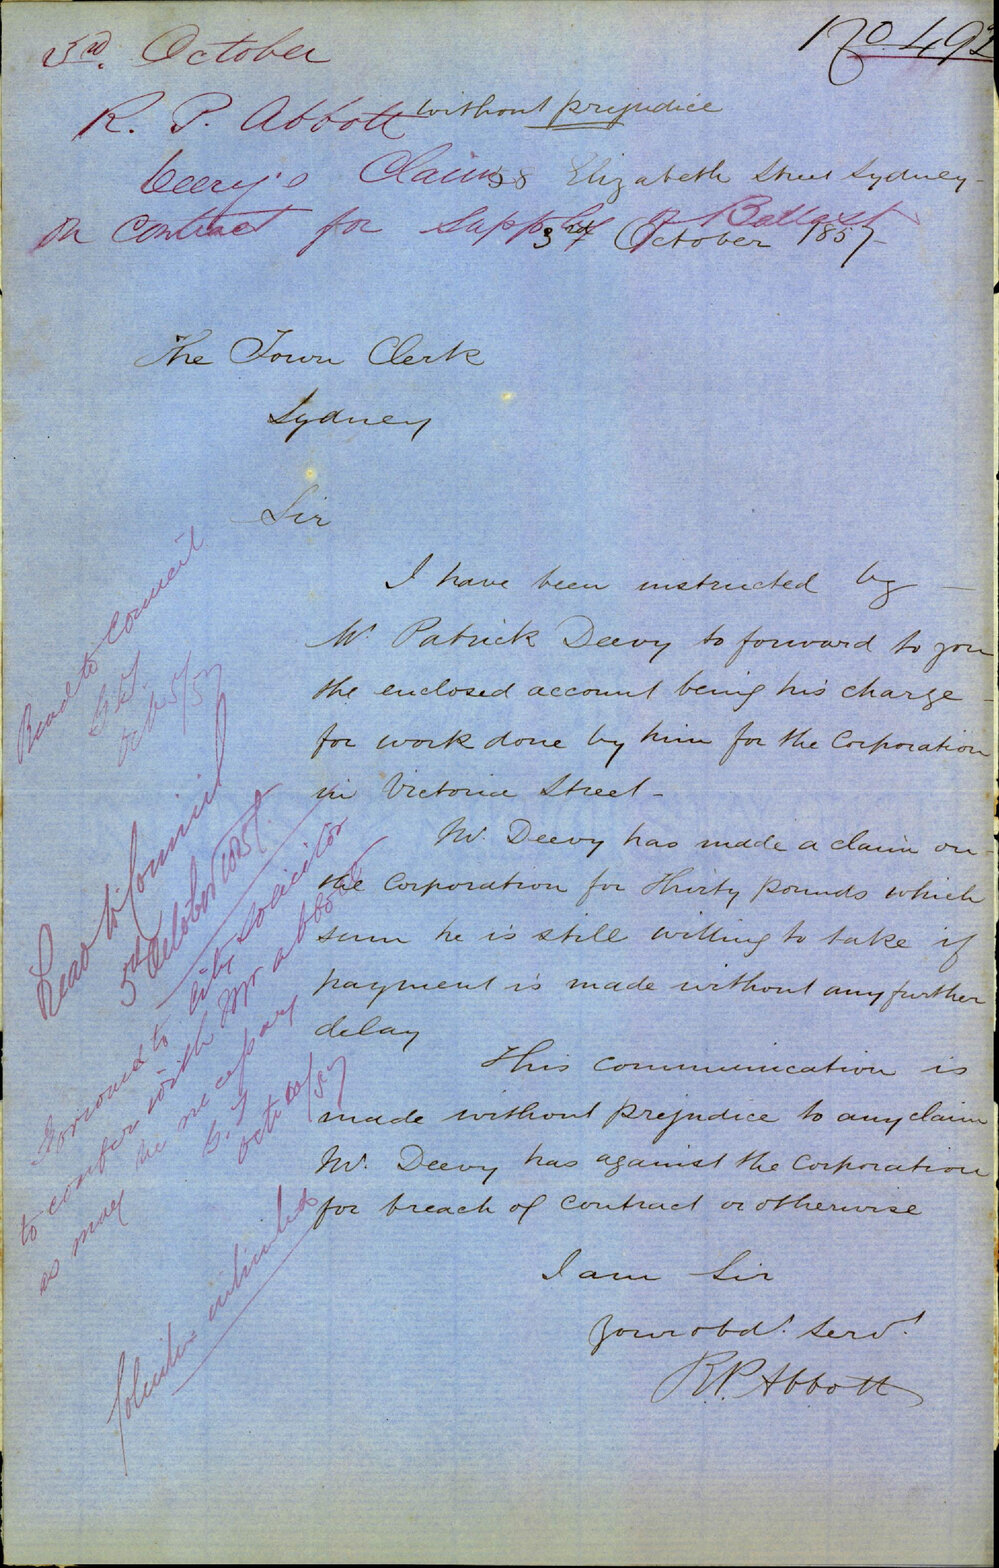 3rd. October
No. 492
R. P. Abbott
without prejudice
Claim
Elizabeth Street Sydney
on contract for supply of Ballast
3rd October 1857
The Town Clerk
Sydney
Sir
I have been instructed by
Mr Patrick Deevy to forward to you
the enclosed account being his charge
for work done by him for the Corporation
in Victoria Street -
Mr. Deevy has made a claim on
the Corporation for Thirty pounds which
sum he is still willing to take if
payment is made without any further
delay
This communication is
made without prejudice to any claim
Mr. Deevy has against the Corporation
for breach of contract or otherwise
I am Sir
your obdt. servt.
R.P. Abbott
Read to Council
Oct 5/57
Read to Council
5th October 1857.
Forward to City Solicitor
to confer with Mr Abbott
as may be necessary
Oct /57
Solicitor